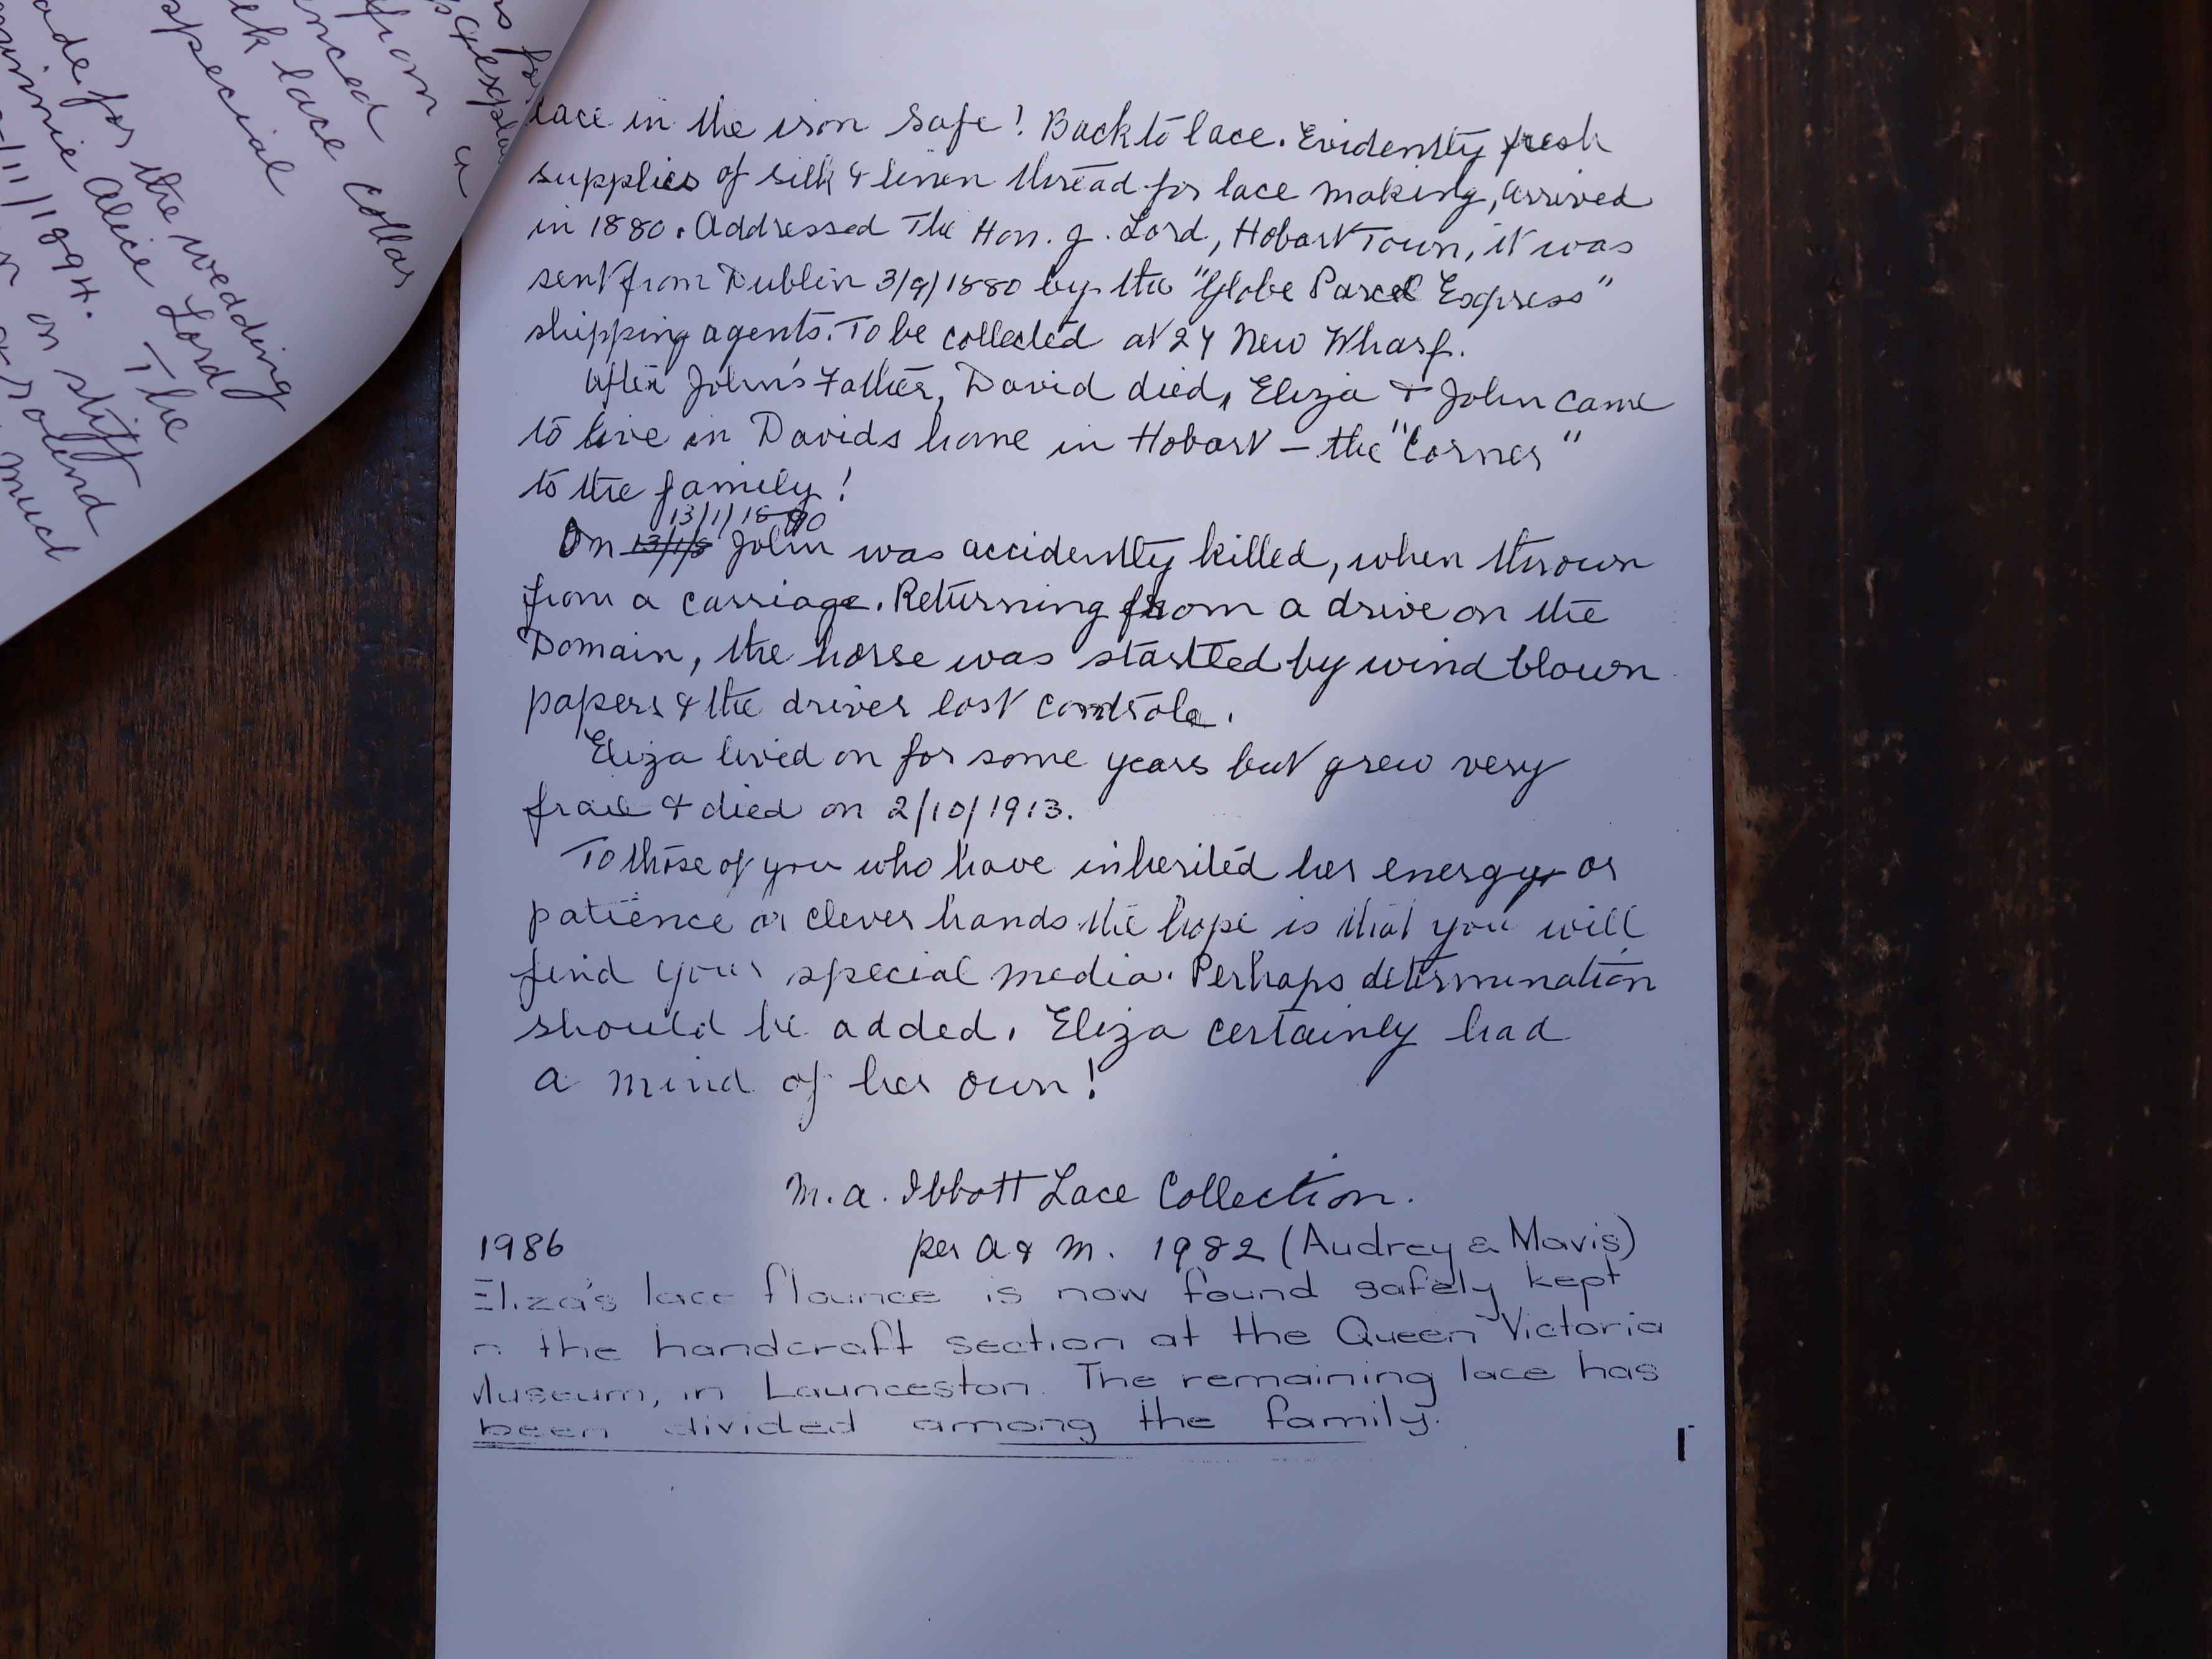 s for
explai
a
from
nced
ek lace collar
special
ade for the wedding
innie Alice Lord
/11/1894. The
on stiff
round
much
lace in the iron safe! Back to lace. Evidently fresh
supplies of silk & linen thread for lace making, arrived
in 1880. Addressed The Hon. J. Lord, Hobart Town, it was
sent from Dublin 3/9/1880 by the "Globe Parcel Express"
shipping agents. To be collected at 24 New Wharf.
After John's Father, David died, Eliza & John came
to live in Davids home in Hobart – the "Corner"
to the family!
13/1/1890
On 13/1/8 John was accidently killed, when thrown
from a carriage. Returning from a drive on the
Domain, the horse was startled by wind blown
papers & the driver lost controle.
Eliza lived on for some years but grew very
frail & died on 2/10/1913.
To those of you who have inherited her energy or
patience or clever hands the hope is that you will
find your special media. Perhaps determination
should be added. Eliza certainly had
a mind of her own!
M.A. Ibbott Lace Collection.
1986 per A & M. 1982 (Audrey & Mavis)
Eliza's lace flounce is now found safely kept
n the handcraft section at the Queen Victoria
Museum, in Launceston. The remaining lace has
been divided among the family.